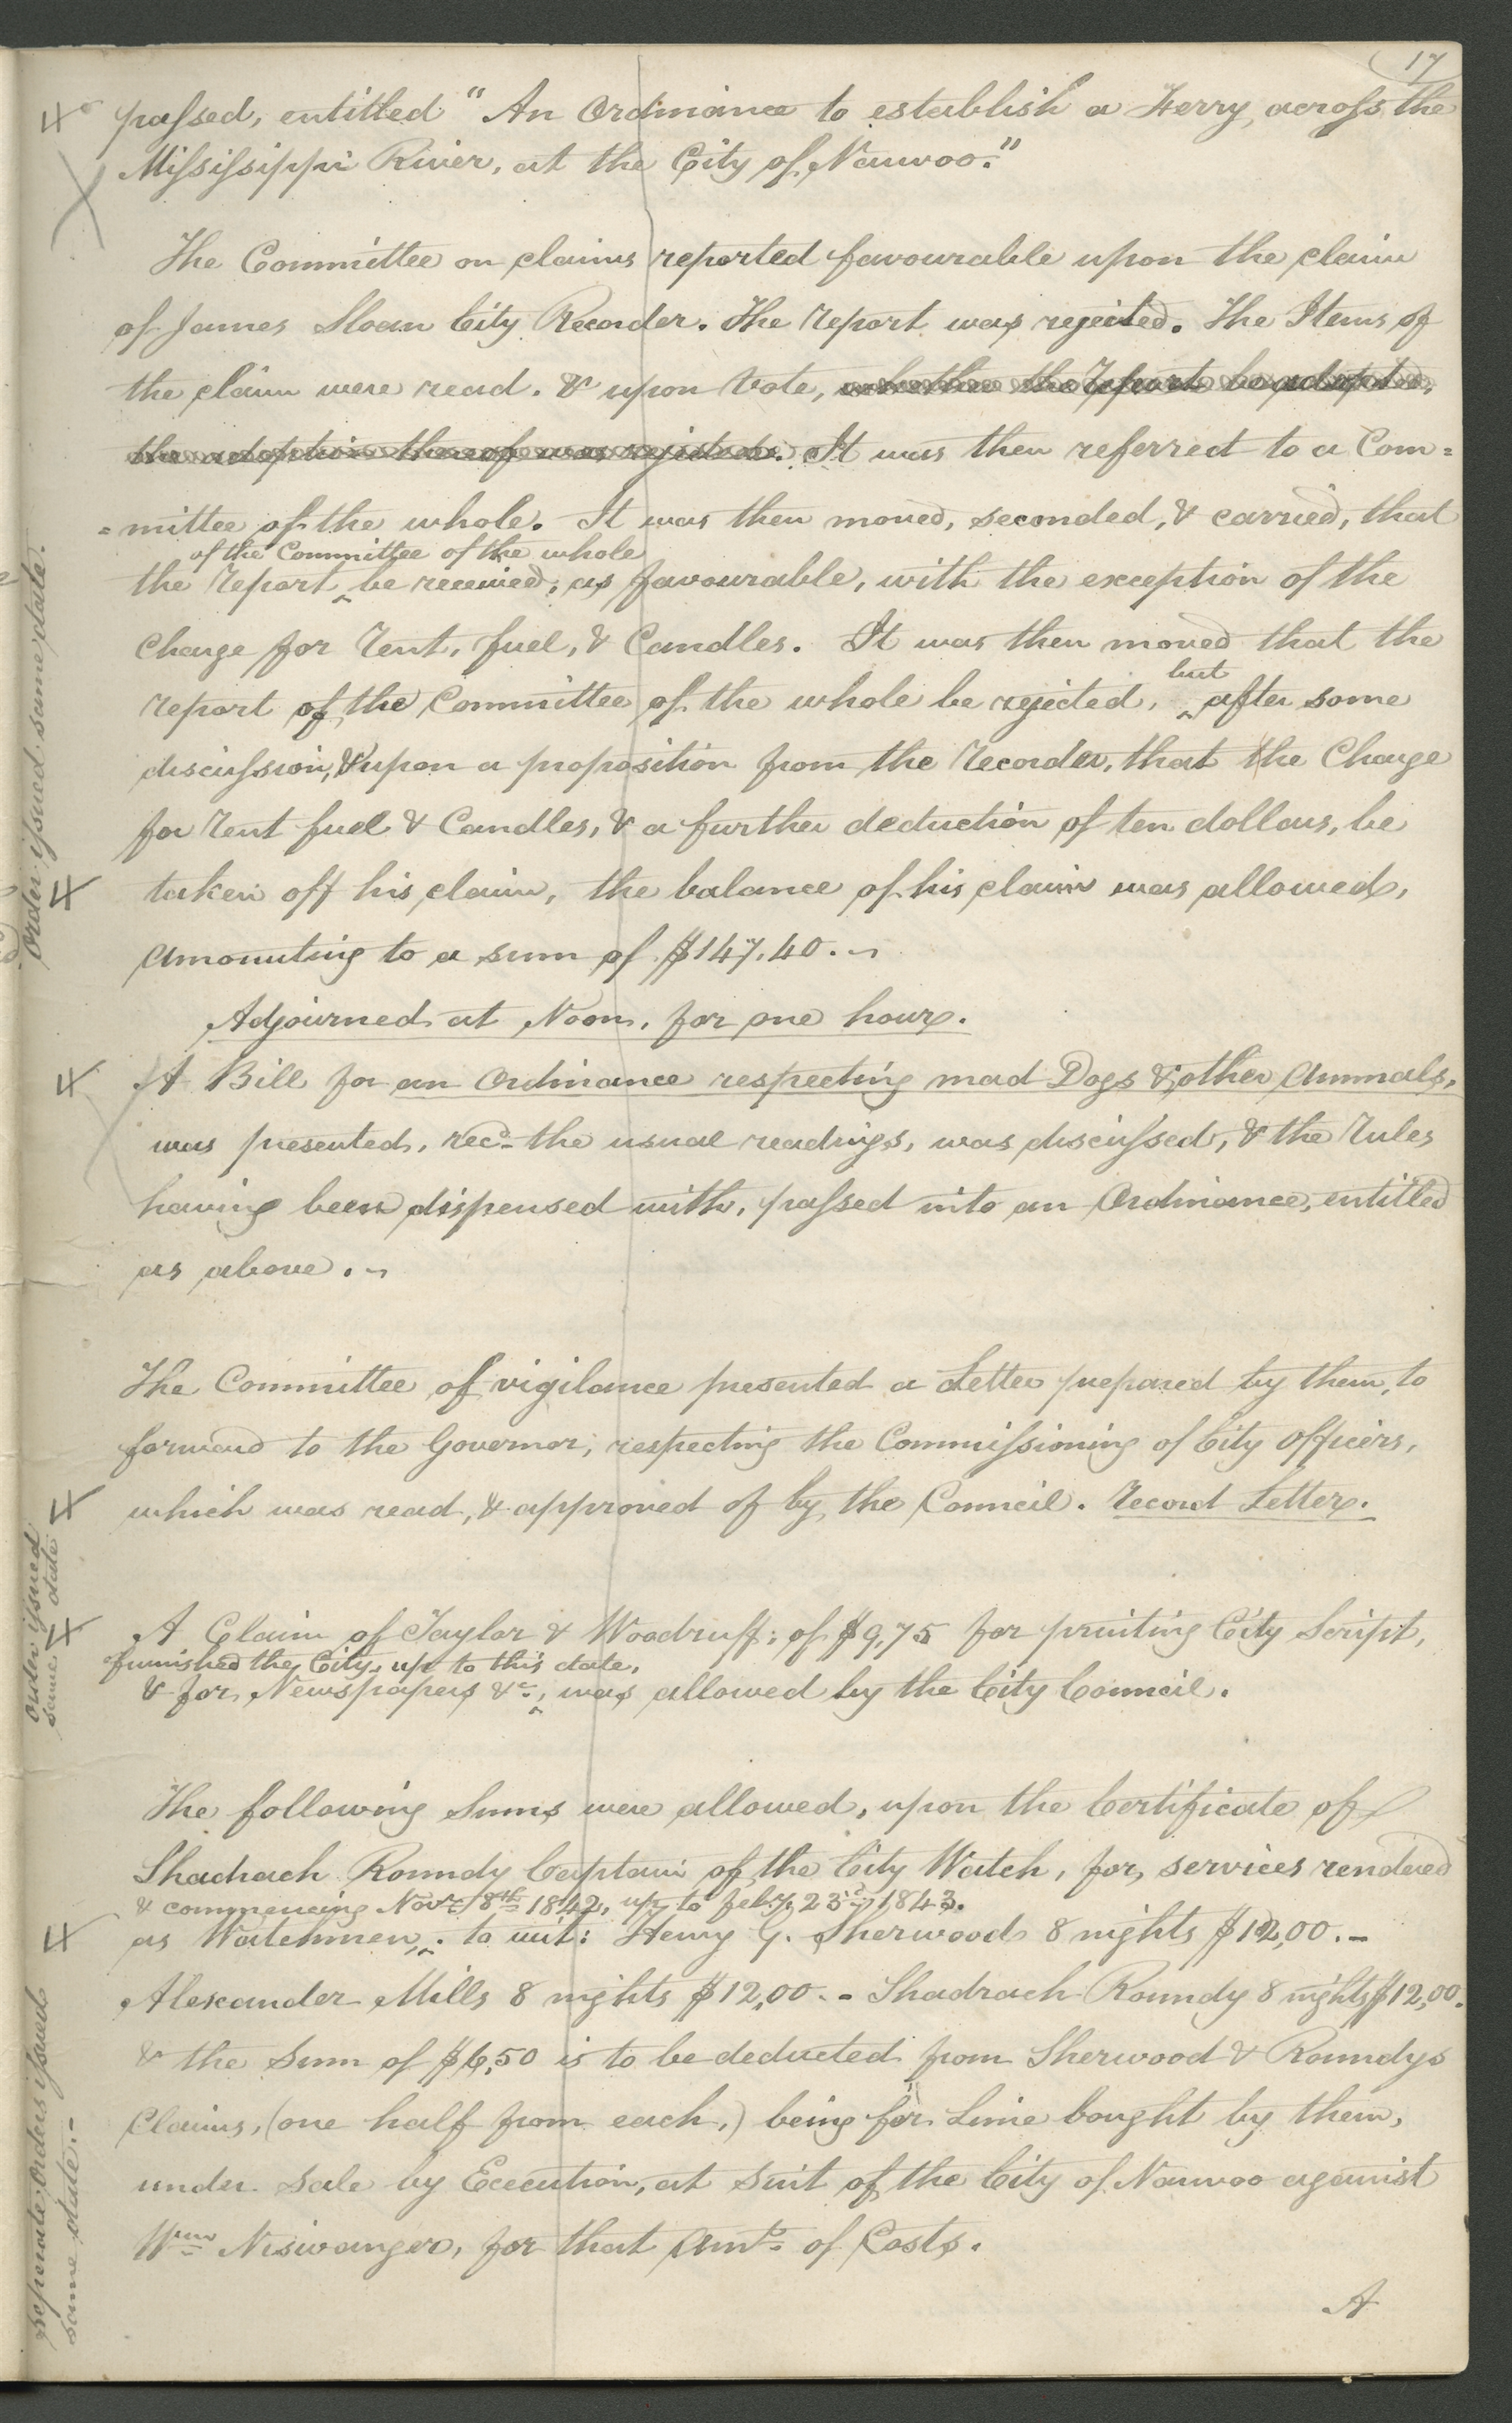 17
passed, entitled "An Ordinance to establish a Ferry, across the
Mississippi River, at the City of Nauvoo."
The Committee on claims reported favourable upon the claim
of James Sloan City Recorder. The report was rejected. The Items of
the claim were read. & upon Vote, whether the Report be adopted,
the adoption thereof was rejected. It was then referred to a Com=
=mittee of the whole. It was then moved, seconded, & carried, that
of the Committee of the whole
the report be received, as favourable, with the exception of the
Charge for rent, fuel, & Candles. It was then moved that the
but
report of the Committee of the whole be rejected, after some
discussion, & upon a proposition from the recorder, that the Charge
for rent fuel & Candles, & a further deduction of ten dollars, be
taken off his claim, the balance of his claim was allowed,
amounting to a sum of $147.40.
Order issued same date.
Adjourned at Noon, for one hour.
A Bill for an Ordinance respecting mad Dogs & other Animals,
was presented, recd. the usual readings, was discussed, & the rules
having been dispensed with, passed into an Ordinance, entitled
as above.
The Committee of vigilance presented a Letter prepared by them, to
forward to the Governor, respecting the Commissioning of City Officers,
which was read, & approved of by the Council. record Letter.
A Claim of Taylor & Woodruff; of $9,75 for printing City Script,
furnished the City, up to this date,
& for Newspapers &c., was allowed by the City Council.
Order issued
same date
The following Sums were allowed, upon the Certificate of
Shadrach Roundy Captain of the City Watch, for services rendered
& commencing Novr. 8th 1842, up to feby. 23rd 1843.
as Watchmen, to wit: Henry G. Sherwood 8 nights $12,00.-
Alexander Mills 8 nights $12,00.- Shadrach Roundy 8 nights $12,00.
& the Sum of $6,50 is to be deducted from Sherwood & Roundys
Claims, (one half from each,) being for Lime bought by them,
under Sale by Execution, at Suit of the City of Nauvoo against
Wm Niswanger, for that amt. of Costs.
seperate orders issued
same date.-
A